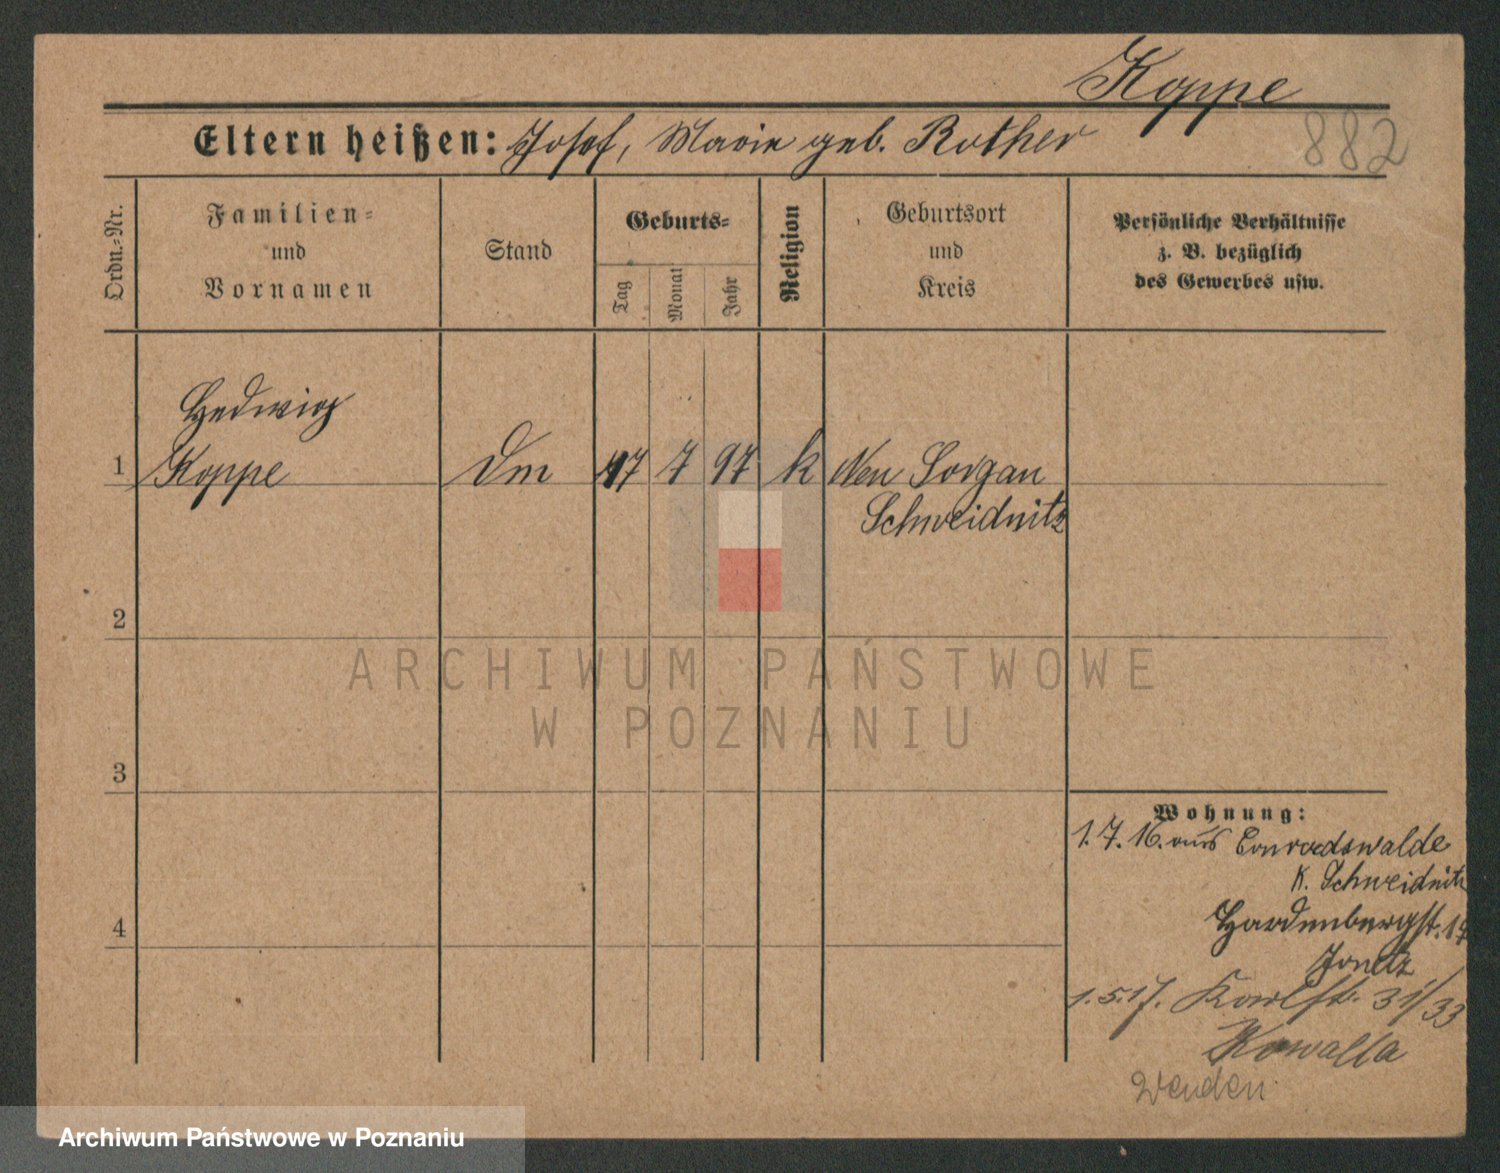 Koppe
Eltern heißen: Josef, Marie geb. Rother
882
Ordn.-Nr.
Familien-
und
Vornamen
Stand
Geburts-
Tag
Monat
Jahr
Religion
Geburtsort
und
Kreis
Persönliche Verhältnisse
z. B. bezüglich
des Gewerbes usw.
Hedwig
1 Koppe Dm 17 7 97 k Neu Sorgau
Schweidnitz
2
ARCHIWUM PAŃSTWOWE
W POZNANIU
3
Wohnung:
1.7.16. aus Conradswalde
K. Schweidnitz
4
Hardenbergst. 17
1.5.17. Karlstr. 31/33
Kowalla
Wenden.
Archiwum Państwowe w Poznaniu